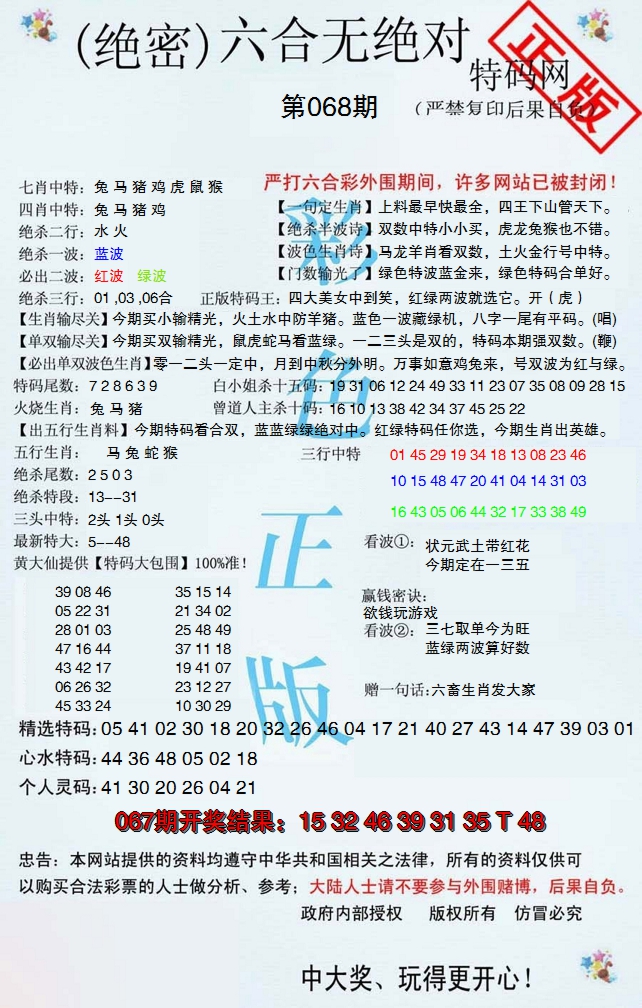 (绝密)六合无绝对
特码网
正版
第068期
(严禁复印后果自负)
七肖中特：兔 马 猪 鸡 虎 鼠 猴
严打六合彩外围期间，许多网站已被封闭！
四肖中特：兔 马 猪 鸡
【一句定生肖】上料最早快最全，四王下山管天下。
绝杀二行：水 火
【绝杀半波诗】双数中特小小买，虎龙兔猴也不错。
绝杀一波：蓝波
【波色生肖诗】马龙羊肖看双数，土火金行号中特。
必出二波：红波 绿波
【门数输光了】绿色特波蓝金来，绿色特码合单好。
绝杀三行：01 ,03 ,06合
正版特码王：四大美女中到笑，红绿两波就选它。开（虎）
【生肖输尽关】今期买小输精光，火土水中防羊猪。蓝色一波藏绿机，八字一尾有平码。(唱)
【单双输尽关】今期买双输精光，鼠虎蛇马看蓝绿。一二三头是双的，特码本期强双数。(鞭)
【必出单双波色生肖】零一二头一定中，月到中秋分外明。万事如意鸡兔来，号双波为红与绿。
特码尾数：7 2 8 6 3 9
白小姐杀十五码：19 31 06 12 24 49 33 11 23 07 35 08 09 28 15
火烧生肖：兔 马 猪
曾道人主杀十码：16 10 13 38 42 34 37 45 25 22
【出五行生肖料】今期特码看合双，蓝蓝绿绿绝对中。红绿特码任你选，今期生肖出英雄。
五行生肖：马 兔 蛇 猴
三行中特
01 45 29 19 34 18 13 08 23 46
绝杀尾数：2 5 0 3
10 15 48 47 20 41 04 14 31 03
绝杀特段：13--31
16 43 05 06 44 32 17 33 38 49
三头中特：2头 1头 0头
最新特大：5--48
看波①：状元武土带红花
今期定在一三五
黄大仙提供【特码大包围】100%准！
39 08 46 35 15 14
05 22 31 21 34 02
28 01 03 25 48 49
47 16 44 37 11 18
43 42 17 19 41 07
06 26 32 23 12 27
45 33 24 10 30 29
赢钱密诀：
欲钱玩游戏
看波②：三七取单今为旺
蓝绿两波算好数
赠一句话:六畜生肖发大家
彩色正版
精选特码：05 41 02 30 18 20 32 26 46 04 17 21 40 27 43 14 47 39 03 01
心水特码：44 36 48 05 02 18
个人灵码：41 30 20 26 04 21
067期开奖结果：15 32 46 39 31 35 T 48
忠告：本网站提供的资料均遵守中华共和国相关之法律，所有的资料仅供可
以购买合法彩票的人士做分析、参考；大陆人士请不要参与外围赌博，后果自负。
政府内部授权 版权所有 仿冒必究
中大奖、玩得更开心！